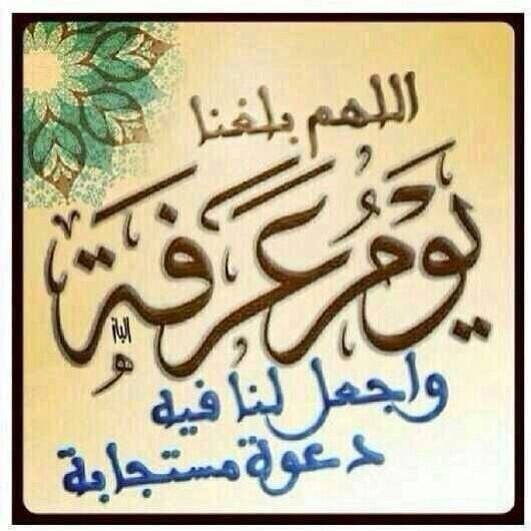 اللهم بلغنا
يَوْمُ عَرَفَةَ
واجعل لنا فيه
دعوة مستجابة